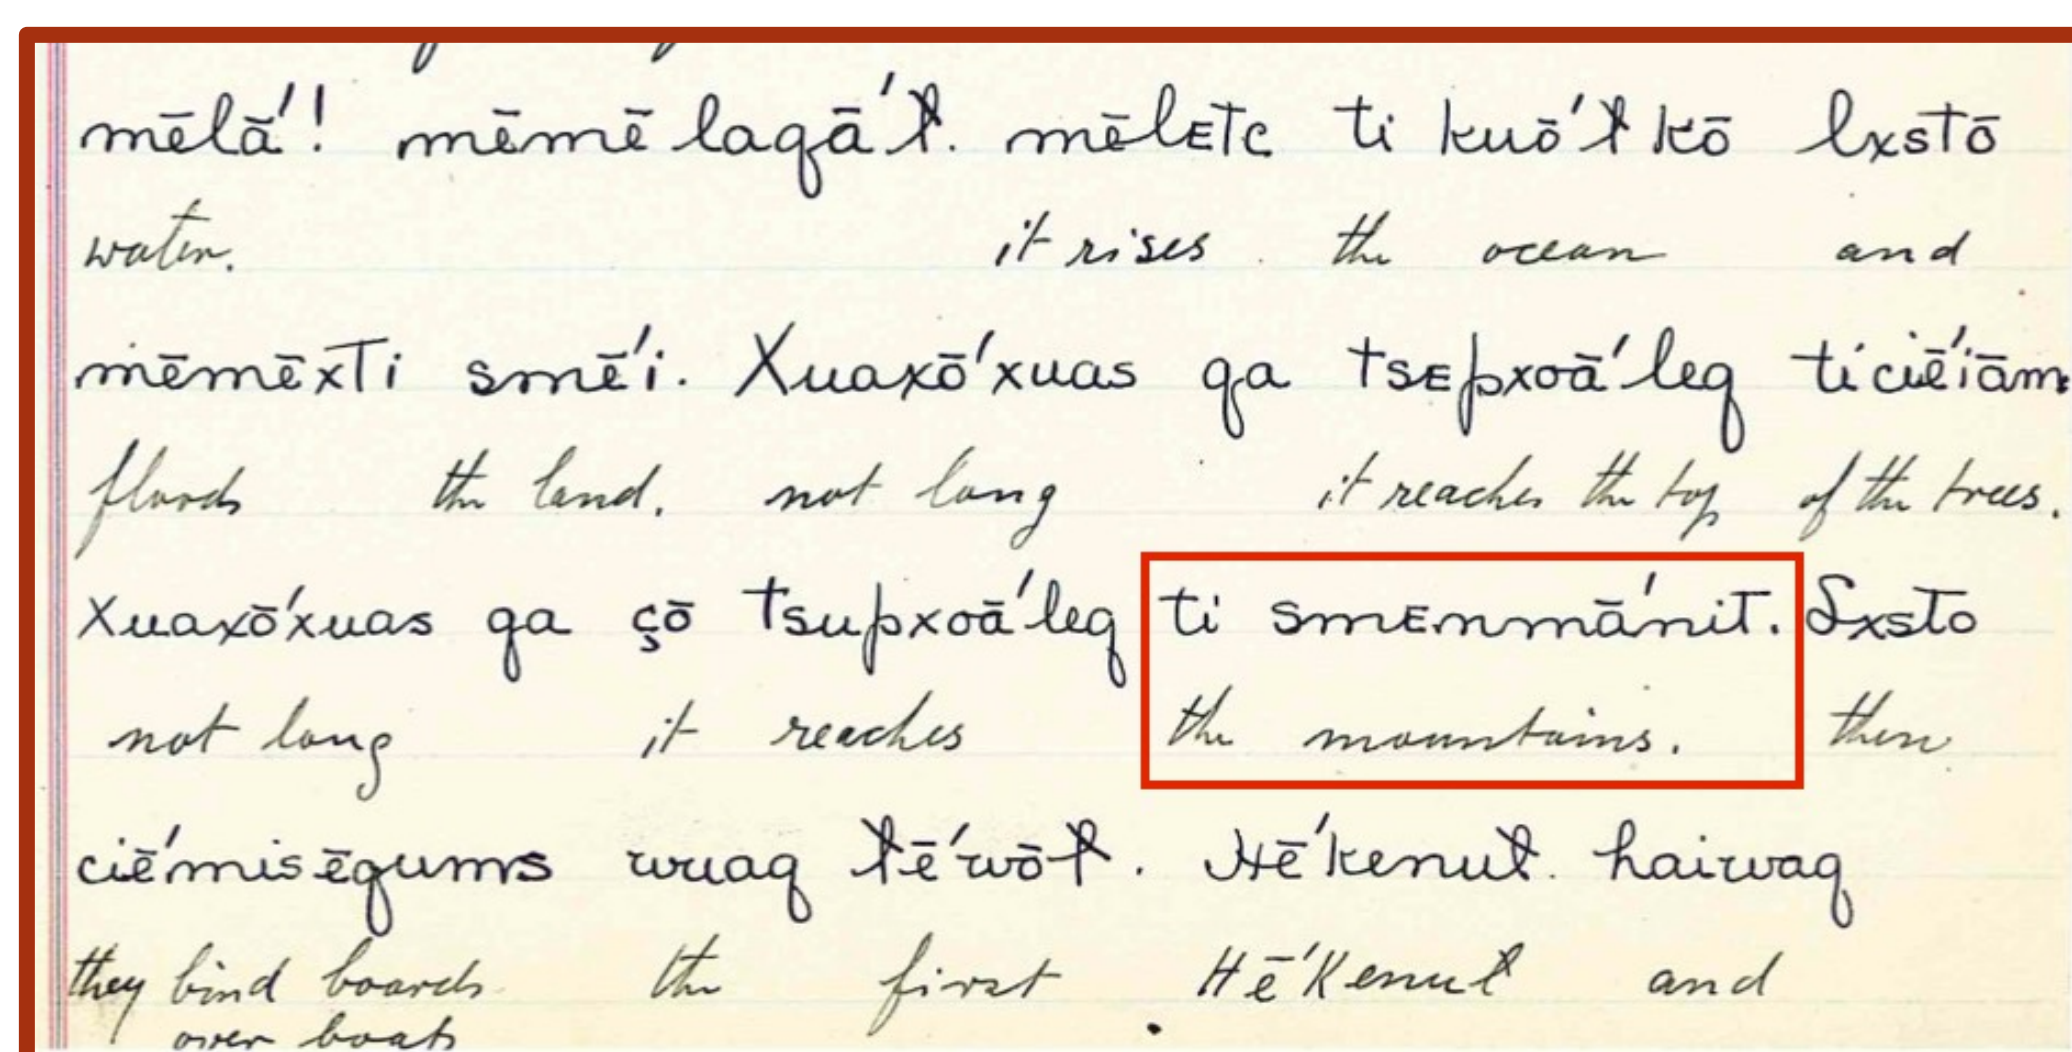 mēlā'! mēmēlaqā'ƚ. mēlᴇtc ti kuō'ƚkō lxstō
water. it rises the ocean and
mēmēxti smē'i. Xuaxō'xuas qa tsᴇpxoā'leq ticiē'iām
floods the land. not long it reaches the top of the trees.
Xuaxō'xuas qa çō tsupxoā'leq ti smᴇnmā'nit. Lxsto
not long it reaches the mountains. then
ciē'misēqums wuaq ƚē'wōƚ. Hē'kenuƚ. haiwaq
they bind boards the first Hē'Kenuƚ and
over boats